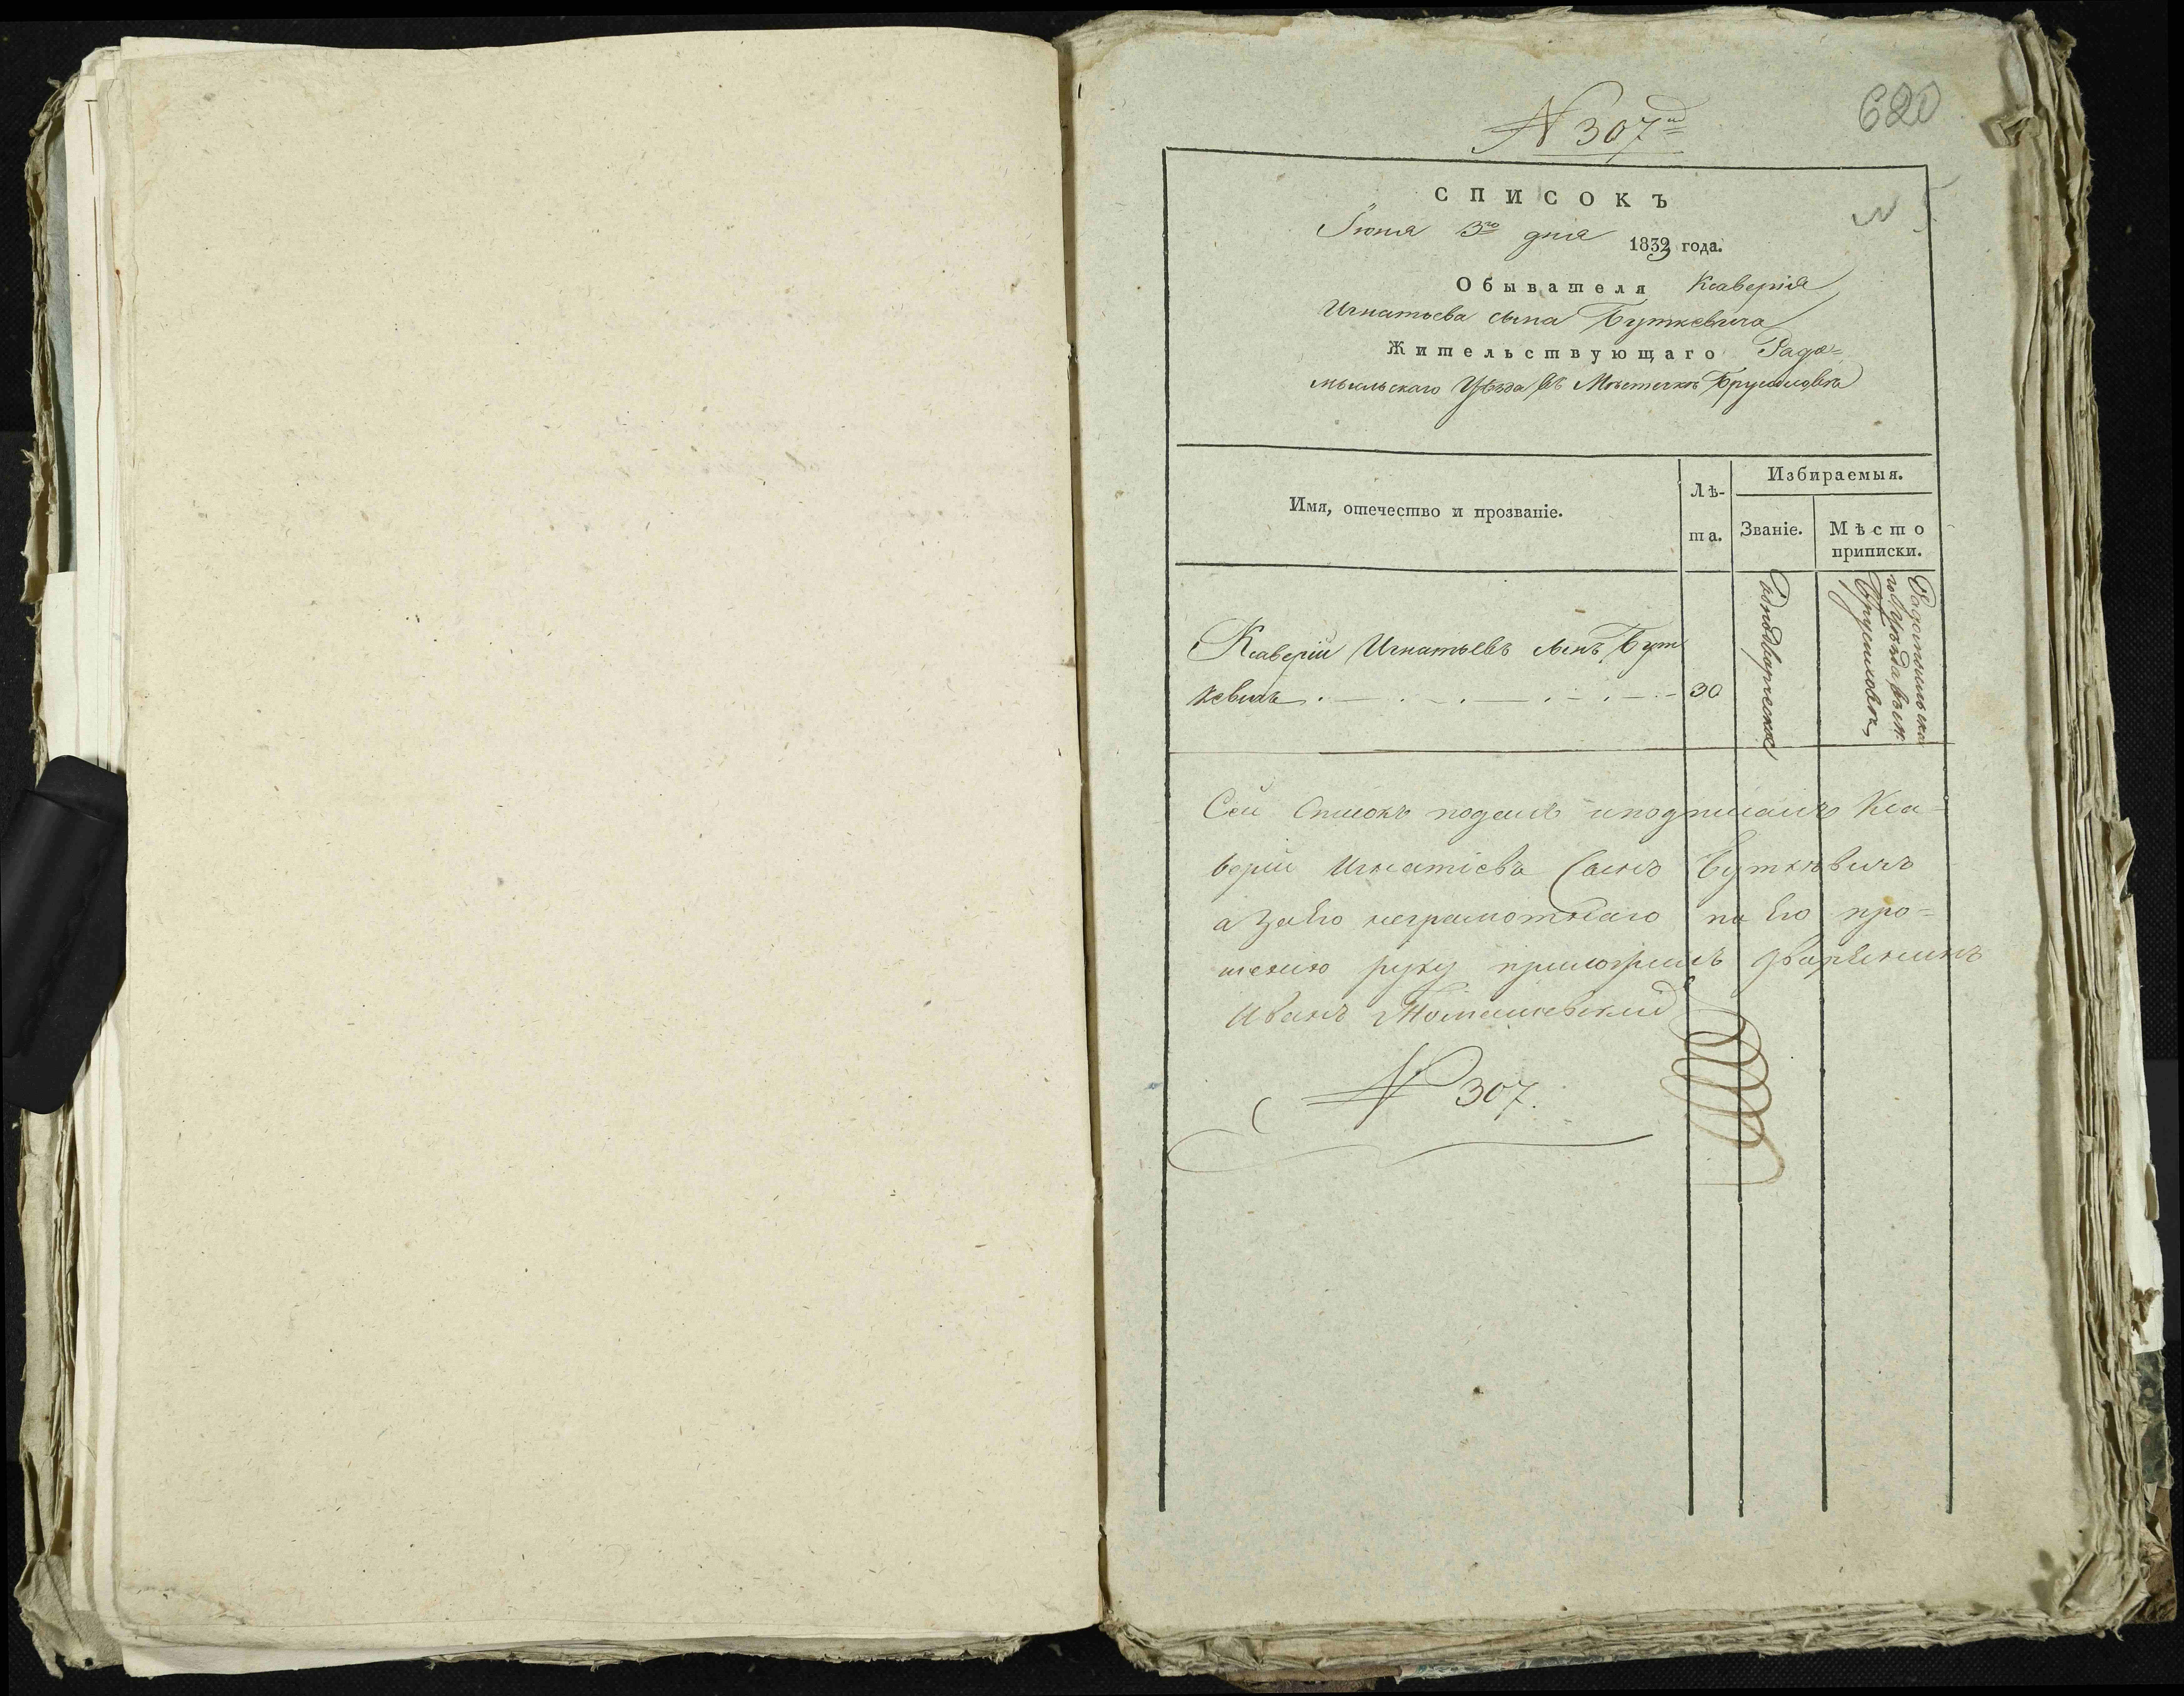 620
N 307й
N 5
СПИСОКЪ
Iюня 13го дня 1832 года.
Обывателя Ксаверія
Игнатьева сына Буткевича
Жительствующаго Радо=
мысльскаго Уѣзда въ Мѣстечкѣ Брусиловѣ
Имя, отечество и прозваніе.
Лѣ-
та.
Избираемыя.
Званіе.
Мѣсто
приписки.
Ксаверій Игнатьевъ сынъ Бут
кевичъ
30
Однодворческое
Радомысльска
го Уѣзда въ м.
Брусиловѣ
Сей Списокъ подалъ и подписалъ Кса-
верій Игнатіевъ Сынъ Буткѣвичъ
а За Его неграмотнаго по Его про=
шенію руку приложилъ Дворянинъ
Иванъ Томашевскій
N 307.